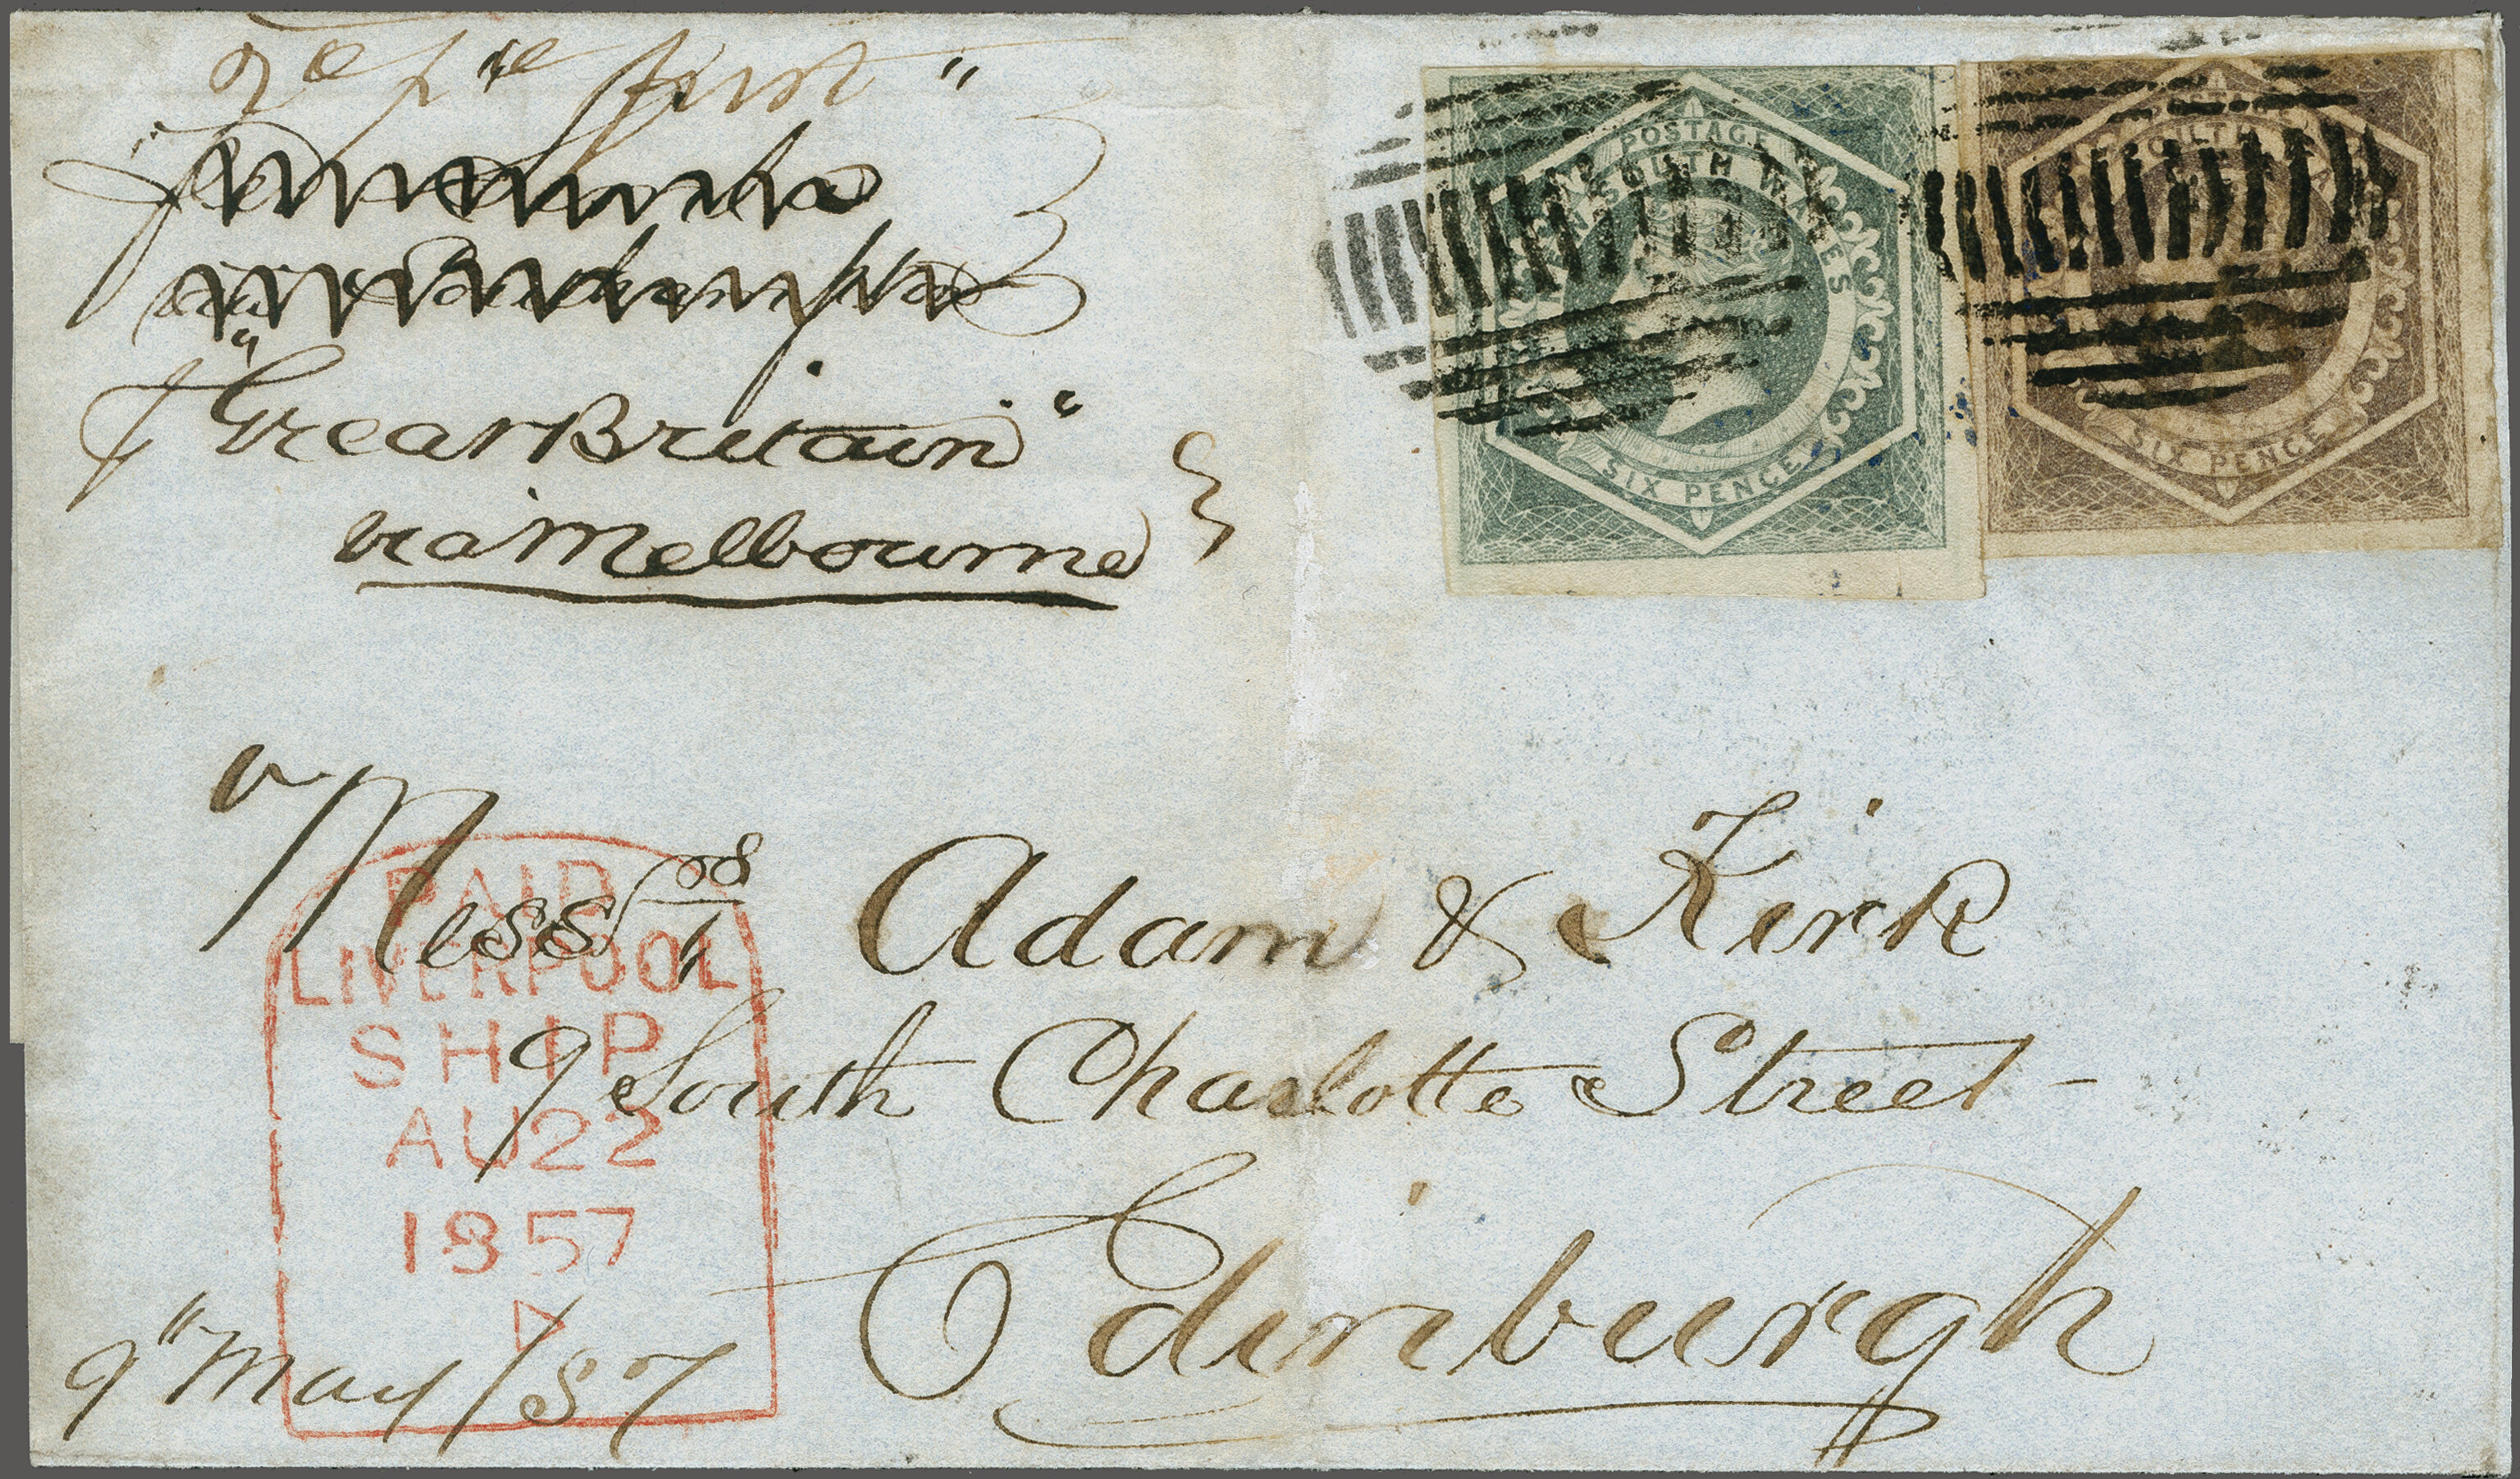 first "
" Great Britain "
via Melbourne
POSTAGE
NEW SOUTH WALES
SIX PENCE
SOUTH
SIX PENCE
Messrs Adam & Kirk
9 South Charlotte Street -
Edinburgh
PAID
LIVERPOOL
SHIP
AU22
1857
9" May / 57